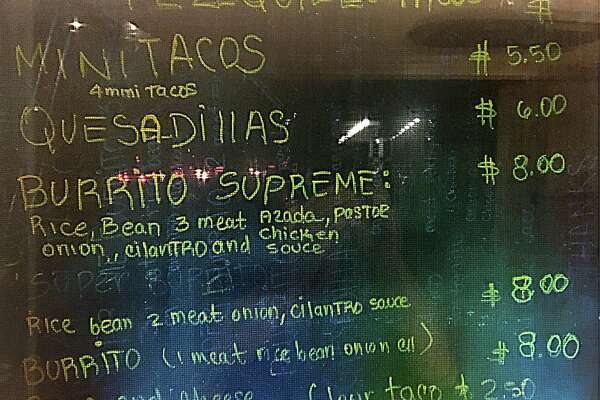 MINI TACOS $ 5.50
4 mmi TACOS
QUESADIllAS $ 6.00
BURRITO SUPREME: $ 8.00
RICE, BEAN 3 meat AZADA, PASTOE
ONION,, cilanTRO and Chicken souce
SUPER
RICE bean 2 meat onion, cilanTRO sauce $ 8.00
BURRITO (1 meat rice bean onion cil) $ 8.00
taco $ 2.50